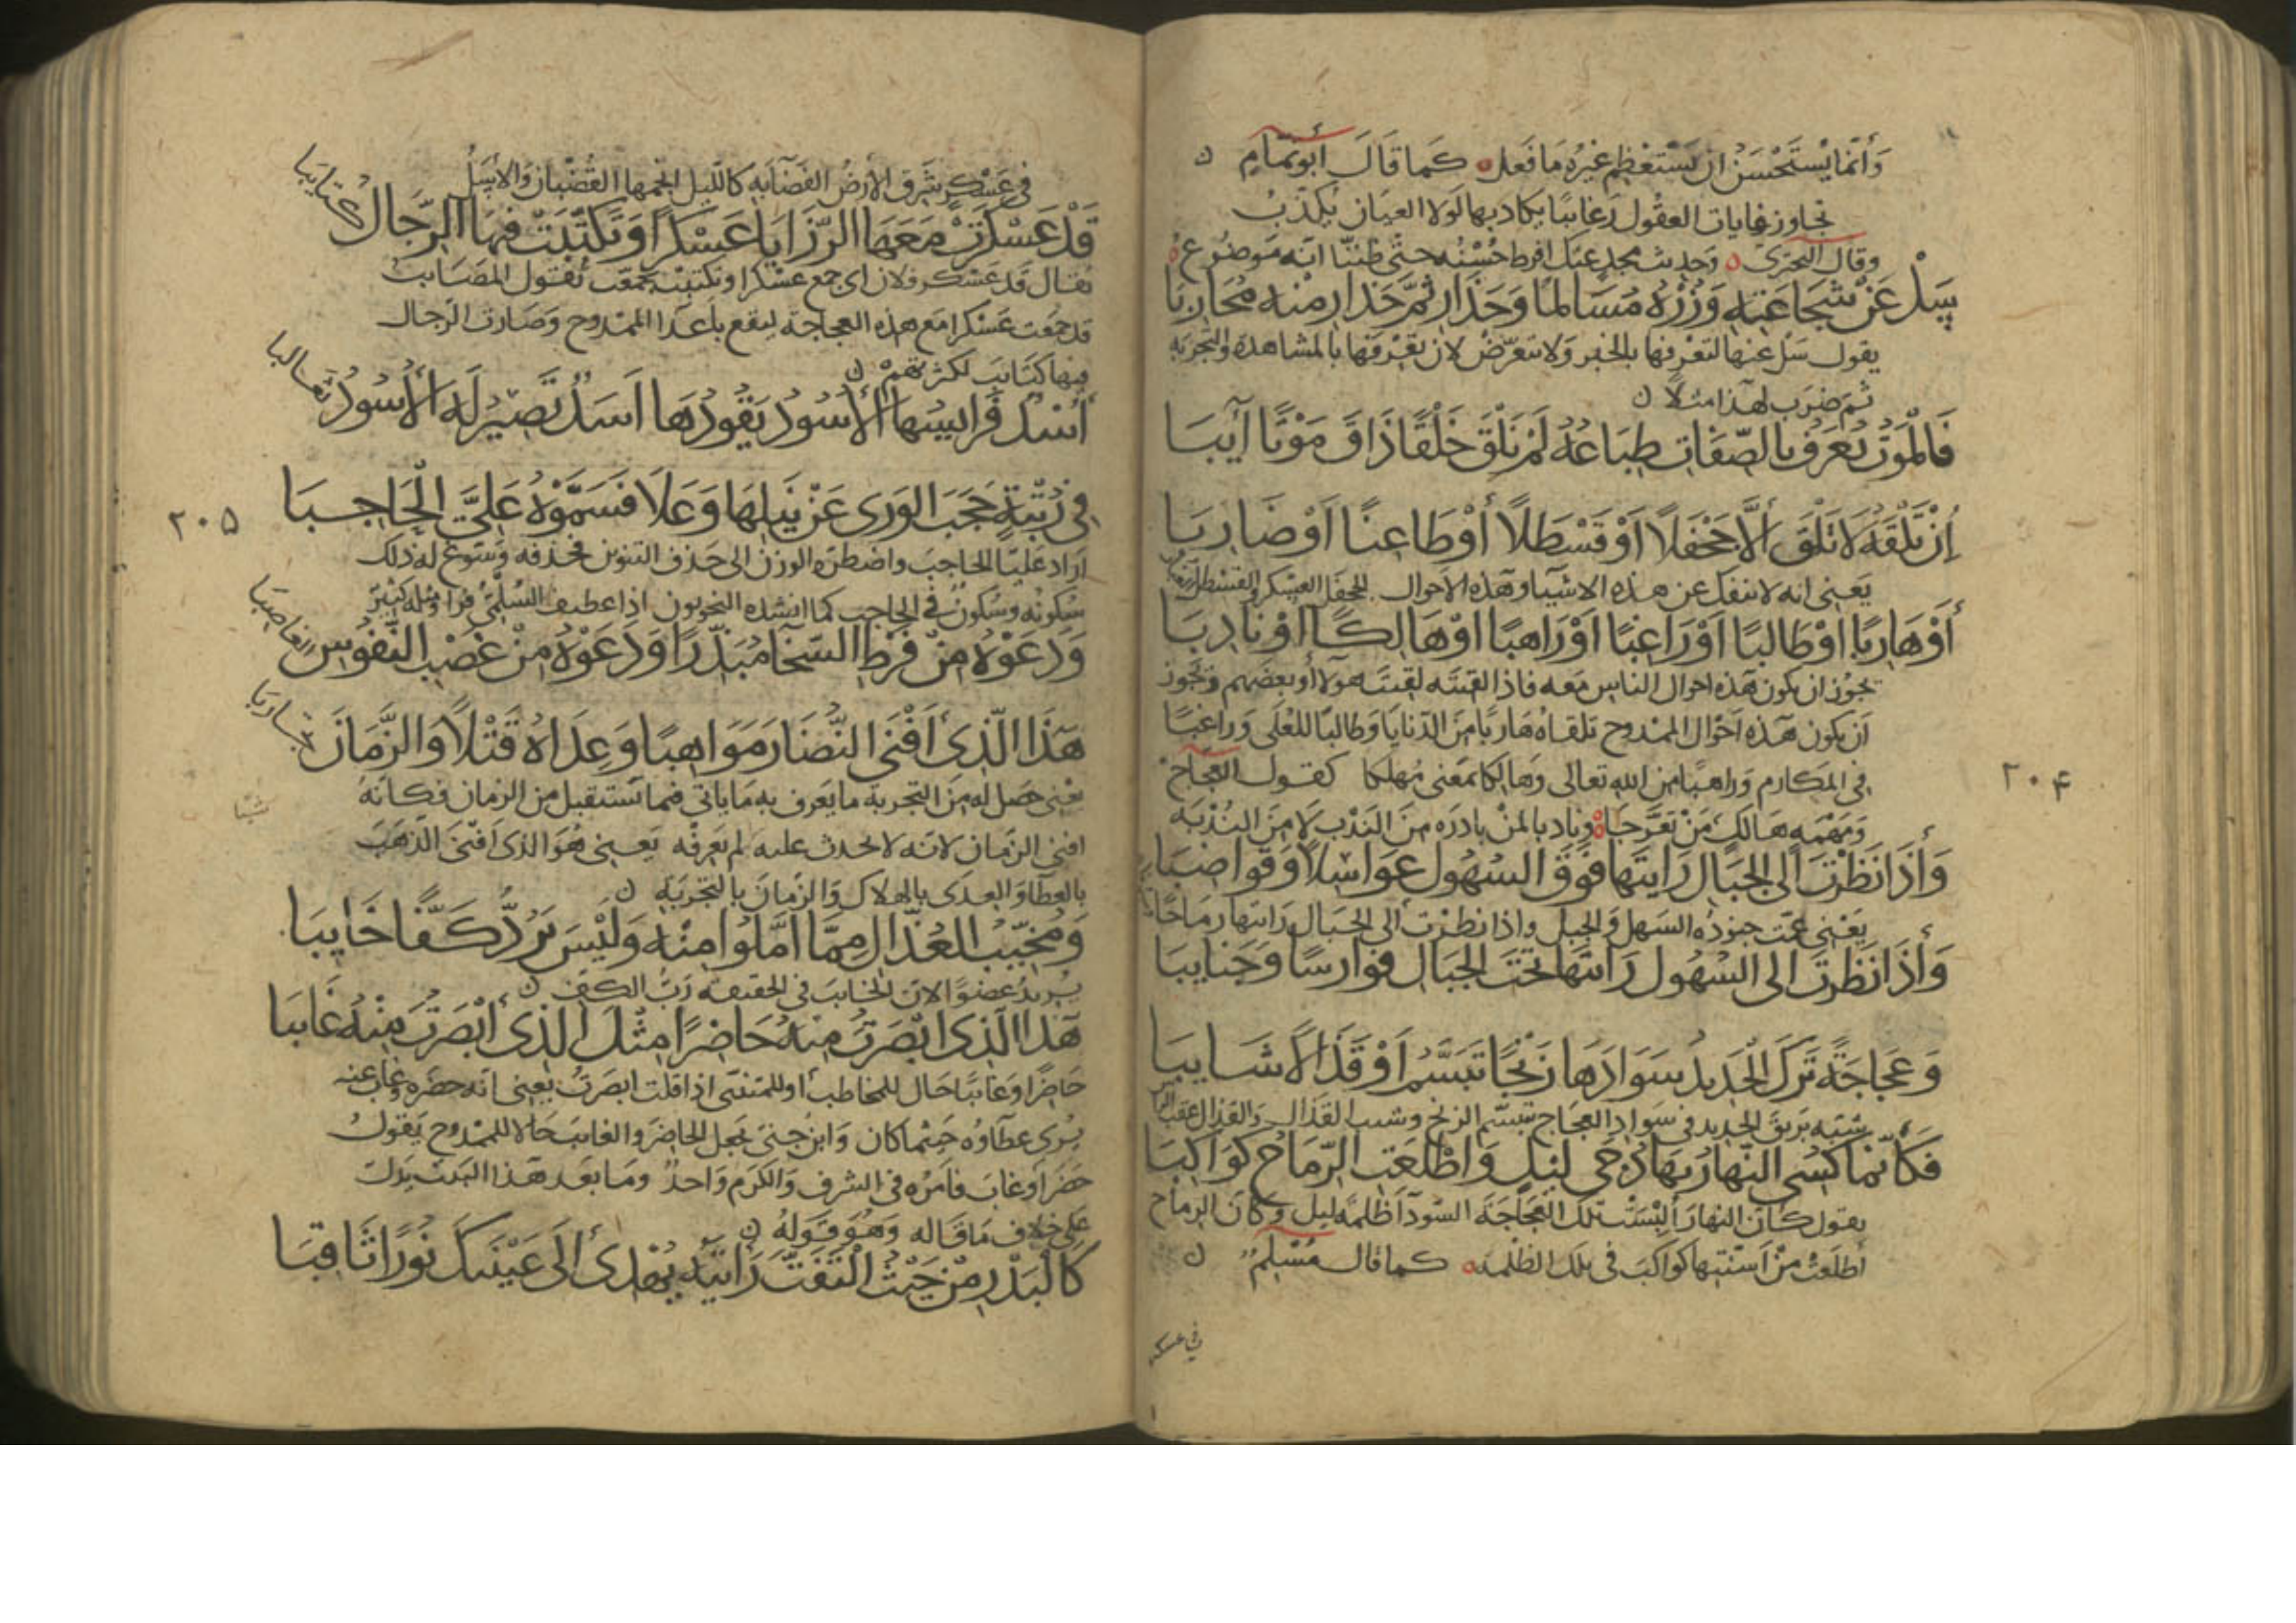 وَانّما يُستَحْسَنُ ان يَسْتَعْظِمَ غيرُه مَا فَعل ه كَما قَالَ ابُو تمّامٍ ن
تجاوز غايات العقُول رَغائبًا يكاد بها لَولا العيان يُكذّبُ
وقال البحتري ه وَحديث مجدٍ عنك افرط حُسْنُه حتّى ظننّا انّه مَوضُوع ه
سَلْ عَنْ شَجَاعَتِهِ وَزُرْهُ مُسَالمًا وَحَذَارِ ثمّ حَذارِ منه مُحَارِبَا
يقول سَل عنها لتعرفها بالخبر وَلا تتعرّض لان تعرفها بالمشاهدة والتجربَه
ثم ضرَب لهذا مثلًا ن
فَالمَوْتُ تُعرَفُ بالصّفَاتِ طِبَاعُهُ لَمْ تَلْقَ خَلْقًا ذَاقَ مَوْتًا آئِبَا
اِنْ تَلْقَهُ لَا تَلْقَ اَلَّا جَحْفَلًا اَوْ قَسْطَلًا أَوْ طَاعِنًا اَوْ ضَارِبَا
يَعني انه لا ينفك عن هذه الاشيَا وهَذه الاحوال الجحفَل العسكر والقسْطل
أَوْ هَارِبًا اوْ طَالبًا اَوْ رَاغِبًا اَوْ رَاهبًا اوْ هَالِكًا اوْ نادِبَا
يجُوز ان يكون هَذه احوال الناس مَعه فاذا لقيتَه لقيتَ هوَلا او بعضَهم وَيجُوز
اَن يكون هَذه احْوال الممدوح تلقاه هَاربًا مِنَ الدّنايَا وَطالبًا للعُلَى وَراغبًا
في المكارم وَراهبًا من اللهِ تعالى وَهَالكا بمَعْنى مُهلكا كقول العجّاج
وَمَهْمَهٍ هَالكِ مَنْ تَعَرَّجَا ه وَنادبا لمنْ بادرَه منَ النَدْب لا منَ النُدْبَه
وَأذَا نَظَرْتَ اَلى الجبَال رَايتَها فَوْقَ السُهُول عَوَاسِلًا وَقَوَاضبَا
يَعْني عمّت جنودُه السَهل وَالجبل واذا نظرْت الى الجبَال رَايتها رمَاحًا
وَأذَا نَظَرْتَ الى السُهُول رَايتَها تحْتَ الجبَال فَوَارسًا وَجَنايبَا
وَعَجَاجَةً تَرَكَ الحَديدُ سَوَادَهَا زَنْجًا تَبَسَّمُ اَوْ قَذَالًا شَايبَا
شبّه بَريقَ الحديد في سَواد العجَاج بتبسّم الزنج وشيب القذال وَالقذال
فَكَأنّما كُسِيَ النّهارُ بهَا دُجَى لَيْلٍ وَاَطْلَعَتِ الرِّمَاحُ كَوَاكِبَا
يقول كانّ النهار أُلبسَتْ تلكَ العجَاجَةَ السّودَا ظلمة ليل وَكانّ الرماح
أطلَعَتْ مِنْ اَسنّتِها كوَاكبَ في تلك الظلمه ه كما قال مُسْلمٌ ن
في عسكر
٢٠٤
في عَسْكرٍ تشرق الارضُ الفضَآ به كاللّيل انجمها القُضْبان وَالاسَلُ
قَدْ عَسْكَرَتْ مَعَهَا الرّزَايَا عَسْكَرًا وَتَكَتَّبَتْ فيهَا الرّجَالُ كتَايبَا
يُقال قد عَسْكر فلان اى جمع عسْكرا وتكتبتْ تجمّعَت يَقول المصَايب
قد جمعَت عَسْكرا مَع هذه العجاجة ليقع باَعدَا الممْدوح وَصَارت الرّجال
فيها كتَايبَ لكثرتهمْ ن
أُسُدٌ فَرَايسُها الأسُودُ يَقُودُهَا اَسَدٌ تَصِيرُ لَهُ الأُسُودُ ثَعَالبا
في رُتْبَةٍ حَجَبَ الوَرَى عَنْ نَيلِهَا وَعَلَا فَسَمَّوْهُ عَلِيَّ الْحَاجِبَا
ارَاد عَليًّا الحاجبَ واضطرّه الوزنُ الى حَذف التنوين فحَذفه وَسَوّغ له ذلك
سُكونُه وسُكونُ في الحاجب كما انشده النحويون اذا عطيف السُلَميُّ فرّا ومثله كثير
وَدَعَوْهُ مِنْ فَرْطِ السَّخَآ مُبَذّرًا وَدَعَوْهُ مِنْ غَصْبِ النّفُوسِ الغاصِبَا
هَذَا الّذِى اَفْنَى النُّضَارَ مَوَاهِبًا وَعِدَاهُ قَتْلًا وَالزَّمَانَ تَجَاربَا
يعني حَصل له منَ التجربة ما يَعرف به مَا ياتي فيما يُستقبل من الزمان فكانهُ
افنى الزَمان لانّه لا يحدث عليه لم يَعرفه يَعني هُوَ الذى اَفنَى الذّهَبَ
بالعطآ وَالعِدَى بالهلاك وَالزمان بالتجربَهِ ن
وَمُخَيِّبُ العُذّالِ مِمّا اَمَّلُوا مِنْهُ وَلَيْسَ يَرُدُّ كَفًّا خَايبَا
يُريدُ عضوًا لانّ الخايبَ في الحقيقَه رَبُّ الكفّ ن
هَذَا الّذِى ابْصَرْتُ مِنهُ حَاضِرًا مِثْلَ الذِى أَبْصَرْتُ مِنْهُ غَائِبَا
حَاضرًا وَغائبًا حَال للمخاطب او للمتنبّي اذا قلت ابصَرتُ يَعني انّه حضره وَغاب عنه
يُرى عطآؤه حَيثما كان وَابن جنّى جَعل الحَاضرَ والغايبَ حَالا للممْدوح يَقولُ
حَضَر اَوْ غابَ فامرُه في الشرف وَالكرَم وَاحدٌ وَمَا بَعد هَذا البَيت يَدل
عَلى خلاف مَا قَاله وَهُوَ قَوله ن
كَالْبَدْرِ مِنْ حَيْثُ الْتَفَتَّ رَايتَهُ يُهْدِى أَلَى عَيْنَيكَ نُورًا ثَاقبَا
٢٠٥